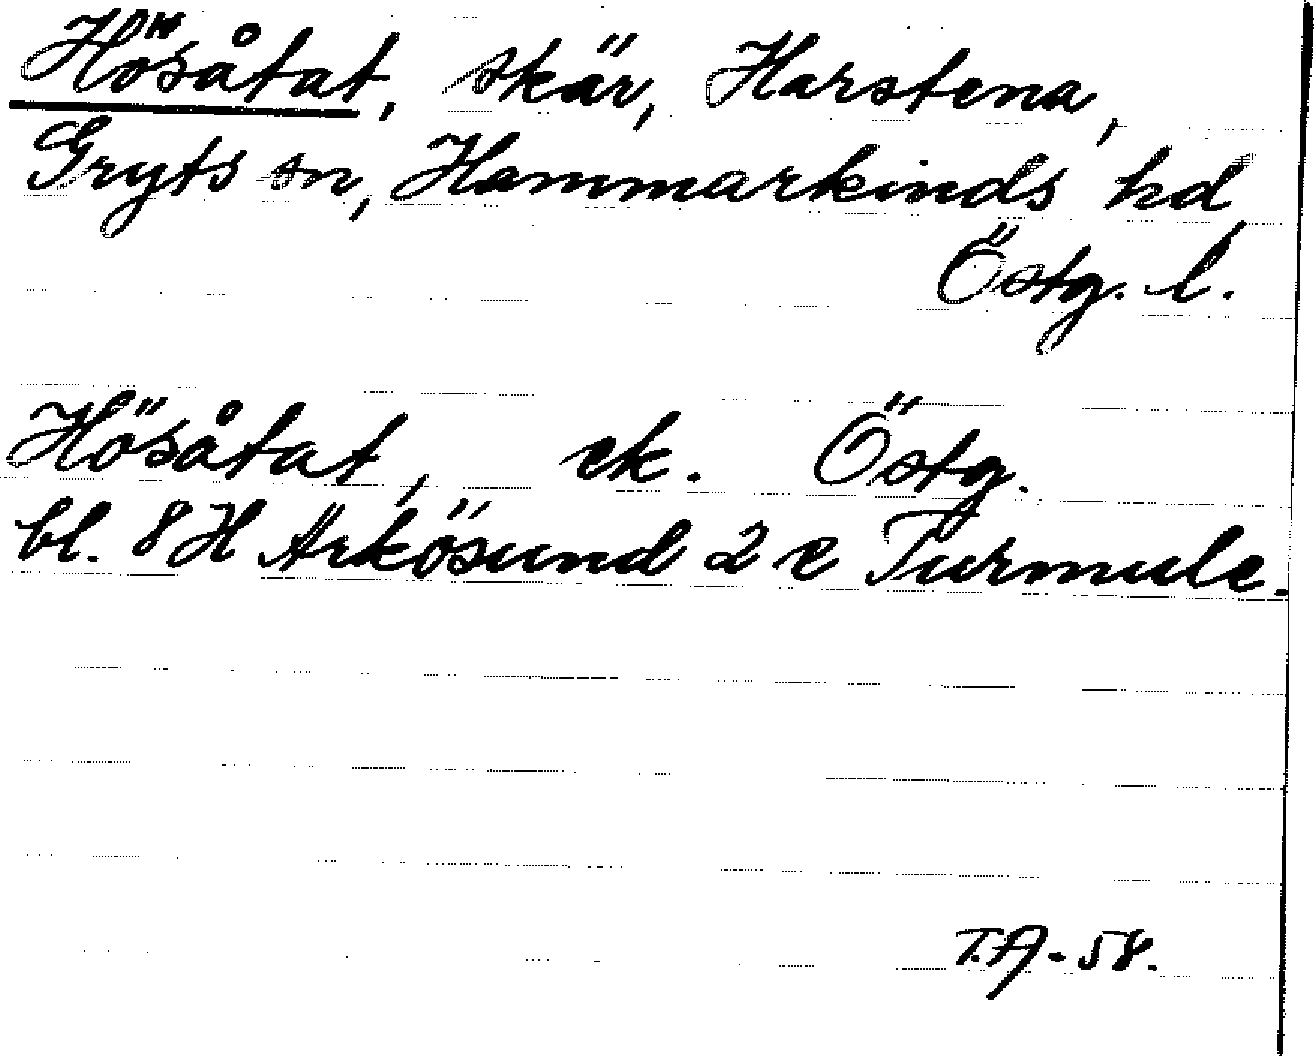 Hösåtat, skär, Harstena,
Gryts sn, Hammarkinds hd
Östg. l.
Hösåtat, ek. Östg.
bl. 8 H Arkösund 2 c Turmule.
T.A - 58.